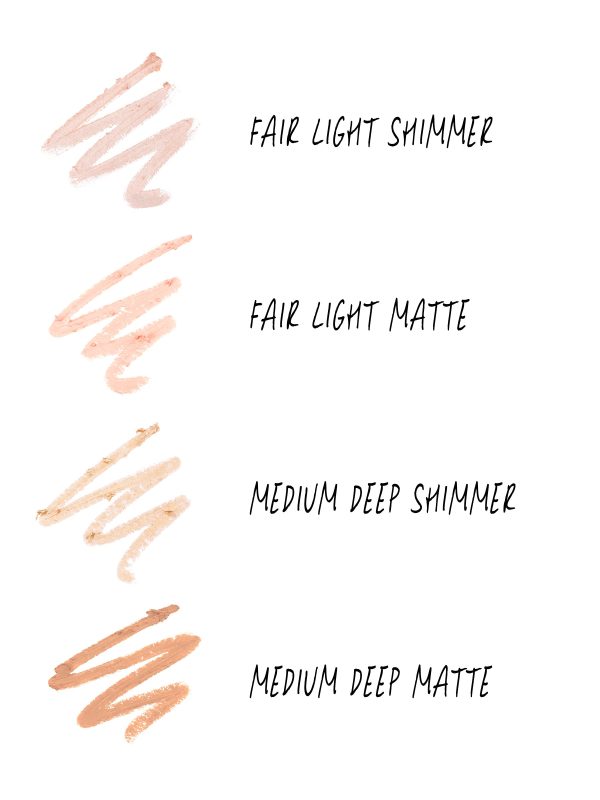 FAIR LIGHT SHIMMER
FAIR LIGHT MATTE
MEDIUM DEEP SHIMMER
MEDIUM DEEP MATTE